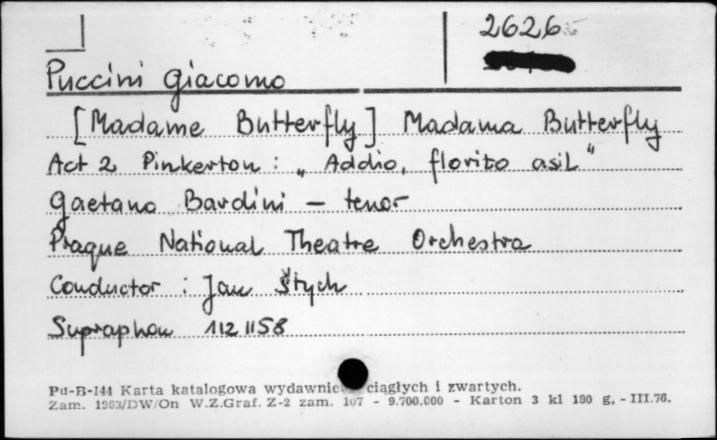 2626
Puccini Giacomo
[Madame Butterfly] Madama Butterfly
Act 2 Pinkerton: „Addio, fiorito asil"
Gaetano Bardini – tenor
Prague National Theatre Orchestra
Conductor: Jan Štych
Supraphon 112 1158
Pu-B-144 Karta katalogowa wydawnictw ciągłych i zwartych.
Zam. 1963/DW/On W.Z.Graf. Z-2 zam. 107 - 9.700.000 - Karton 3 kl 190 g, - III.76.